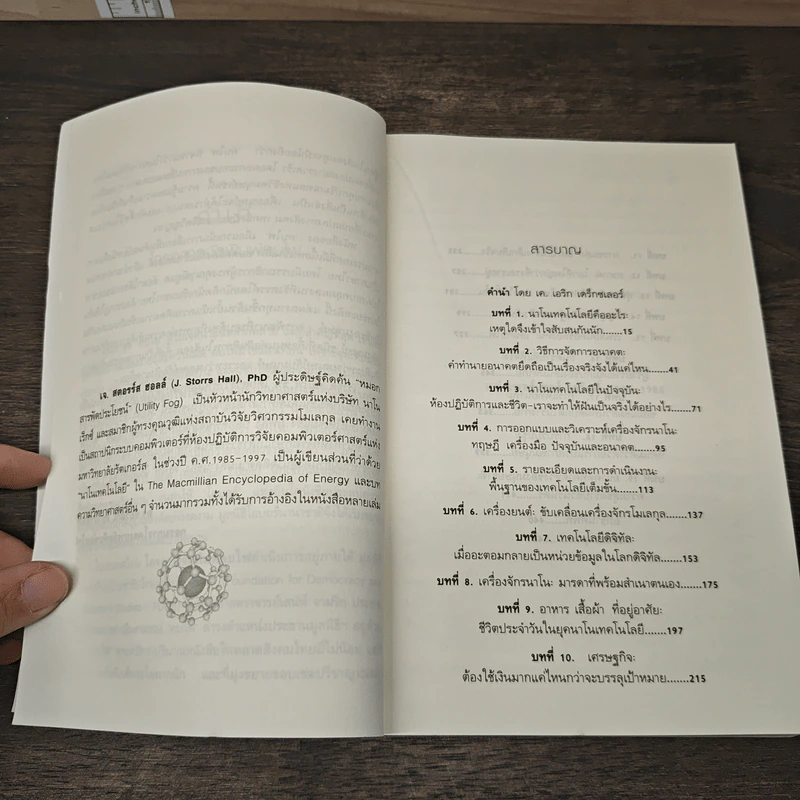 เจ. สตอรร์ส ฮอลล์ (J. Storrs Hall), PhD ผู้ประดิษฐ์คิดค้น "หมอก
สารพัดประโยชน์" (Utility Fog) เป็นหัวหน้านักวิทยาศาสตร์แห่งบริษัท นาโน
เร็กซ์ และสมาชิกผู้ทรงคุณวุฒิแห่งสถาบันวิจัยวิศวกรรมโมเลกุล เคยทำงาน
เป็นสถาปนิกระบบคอมพิวเตอร์ที่ห้องปฏิบัติการวิจัยคอมพิวเตอร์ศาสตร์แห่ง
มหาวิทยาลัยรัตเกอร์ส ในช่วงปี ค.ศ.1985-1997 เป็นผู้เขียนส่วนที่ว่าด้วย
"นาโนเทคโนโลยี" ใน The Macmillian Encyclopedia of Energy และบท
ความวิทยาศาสตร์อื่น ๆ จำนวนมากรวมทั้งได้รับการอ้างอิงในหนังสือหลายเล่ม
สารบาญ
คำนำ โดย เค. เอริก เดร็กซเลอร์
บทที่ 1. นาโนเทคโนโลยีคืออะไร:
เหตุใดจึงเข้าใจสับสนกันนัก.......15
บทที่ 2. วิธีการจัดการอนาคต:
คำทำนายอนาคตยึดถือเป็นเรื่องจริงจังได้แค่ไหน.......41
บทที่ 3. นาโนเทคโนโลยีในปัจจุบัน:
ห้องปฏิบัติการและชีวิต-เราจะทำให้ฝันเป็นจริงได้อย่างไร.......71
บทที่ 4. การออกแบบและวิเคราะห์เครื่องจักรนาโน:
ทฤษฎี เครื่องมือ ปัจจุบันและอนาคต.......95
บทที่ 5. รายละเอียดและการดำเนินงาน:
พื้นฐานของเทคโนโลยีเต็มขั้น.......113
บทที่ 6. เครื่องยนต์: ขับเคลื่อนเครื่องจักรโมเลกุล.......137
บทที่ 7. เทคโนโลยีดิจิทัล:
เมื่ออะตอมกลายเป็นหน่วยข้อมูลในโลกดิจิทัล.......153
บทที่ 8. เครื่องจักรนาโน: มารดาที่พร้อมสำเนาตนเอง.......175
บทที่ 9. อาหาร เสื้อผ้า ที่อยู่อาศัย:
ชีวิตประจำวันในยุคนาโนเทคโนโลยี.......197
บทที่ 10. เศรษฐกิจ:
ต้องใช้เงินมากแค่ไหนกว่าจะบรรลุเป้าหมาย.......215